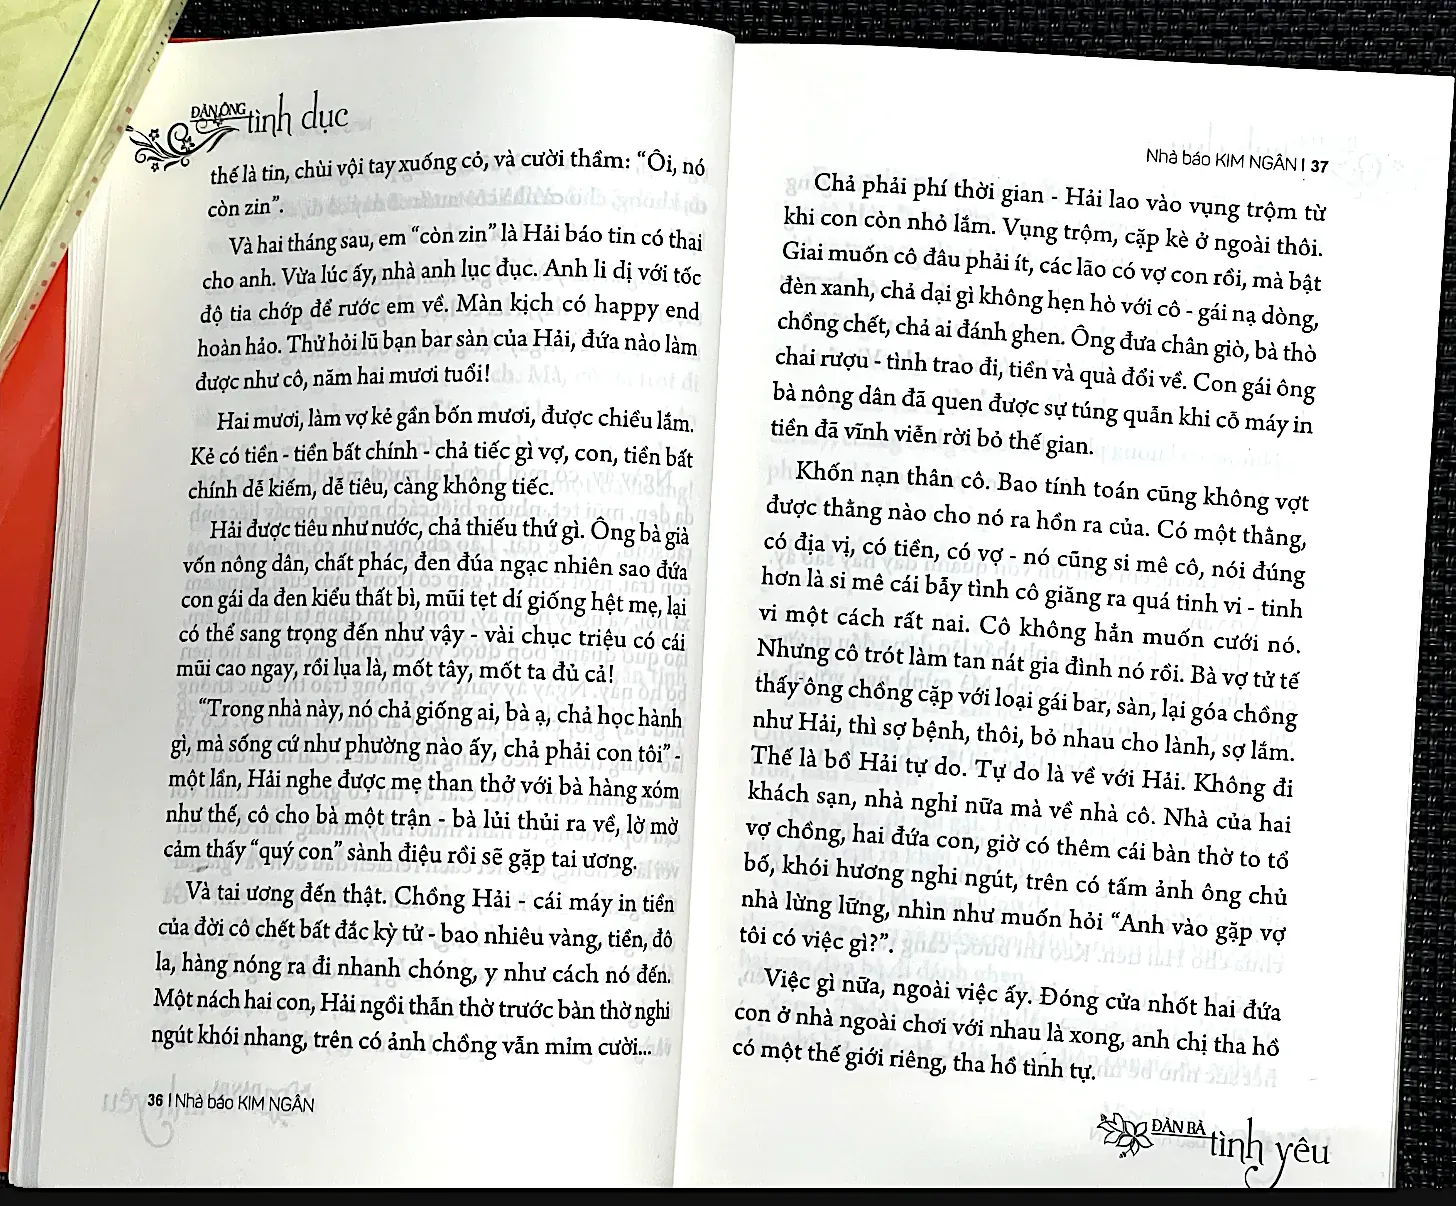 ĐÀN ÔNG tình dục
thế là tin, chùi vội tay xuống cỏ, và cười thầm: “Ôi, nó
còn zin”.
Và hai tháng sau, em “còn zin” là Hải báo tin có thai
cho anh. Vừa lúc ấy, nhà anh lục đục. Anh li dị với tốc
độ tia chớp để rước em về. Màn kịch có happy end
hoàn hảo. Thử hỏi lũ bạn bar sàn của Hải, đứa nào làm
được như cô, năm hai mươi tuổi!
Hai mươi, làm vợ kẻ gần bốn mươi, được chiều lắm.
Kẻ có tiền - tiền bất chính - chả tiếc gì vợ, con, tiền bất
chính dễ kiếm, dễ tiêu, càng không tiếc.
Hải được tiêu như nước, chả thiếu thứ gì. Ông bà già
vốn nông dân, chất phác, đen đúa ngạc nhiên sao đứa
con gái da đen kiểu thất bì, mũi tẹt dí giống hệt mẹ, lại
có thể sang trọng đến như vậy - vài chục triệu có cái
mũi cao ngay, rồi lụa là, mốt tây, mốt ta đủ cả!
“Trong nhà này, nó chả giống ai, bà ạ, chả học hành
gì, mà sống cứ như phường nào ấy, chả phải con tôi” -
một lần, Hải nghe được mẹ than thở với bà hàng xóm
như thế, cô cho bà một trận - bà lủi thủi ra về, lờ mờ
cảm thấy “quý con” sành điệu rồi sẽ gặp tai ương.
Và tai ương đến thật. Chồng Hải - cái máy in tiền
của đời cô chết bất đắc kỳ tử - bao nhiêu vàng, tiền, đô
la, hàng nóng ra đi nhanh chóng, y như cách nó đến.
Một nách hai con, Hải ngồi thẫn thờ trước bàn thờ nghi
ngút khói nhang, trên có ảnh chồng vẫn mỉm cười...
36 | Nhà báo KIM NGÂN
Nhà báo KIM NGÂN | 37
Chả phải phí thời gian - Hải lao vào vụng trộm từ
khi con còn nhỏ lắm. Vụng trộm, cặp kè ở ngoài thôi.
Giai muốn cô đâu phải ít, các lão có vợ con rồi, mà bật
đèn xanh, chả dại gì không hẹn hò với cô - gái nạ dòng,
chồng chết, chả ai đánh ghen. Ông đưa chân giò, bà thò
chai rượu - tình trao đi, tiền và quà đổi về. Con gái ông
bà nông dân đã quen được sự túng quẫn khi cỗ máy in
tiền đã vĩnh viễn rời bỏ thế gian.
Khốn nạn thân cô. Bao tính toán cũng không vợt
được thằng nào cho nó ra hồn ra của. Có một thằng,
có địa vị, có tiền, có vợ - nó cũng si mê cô, nói đúng
hơn là si mê cái bẫy tình cô giăng ra quá tinh vi - tinh
vi một cách rất nai. Cô không hẳn muốn cưới nó.
Nhưng cô trót làm tan nát gia đình nó rồi. Bà vợ tử tế
thấy ông chồng cặp với loại gái bar, sàn, lại góa chồng
như Hải, thì sợ bệnh, thôi, bỏ nhau cho lành, sợ lắm.
Thế là bồ Hải tự do. Tự do là về với Hải. Không đi
khách sạn, nhà nghỉ nữa mà về nhà cô. Nhà của hai
vợ chồng, hai đứa con, giờ có thêm cái bàn thờ to tổ
bố, khói hương nghi ngút, trên có tấm ảnh ông chủ
nhà lừng lững, nhìn như muốn hỏi “Anh vào gặp vợ
tôi có việc gì?”.
Việc gì nữa, ngoài việc ấy. Đóng cửa nhốt hai đứa
con ở nhà ngoài chơi với nhau là xong, anh chị tha hồ
có một thế giới riêng, tha hồ tình tự.
ĐÀN BÀ tình yêu